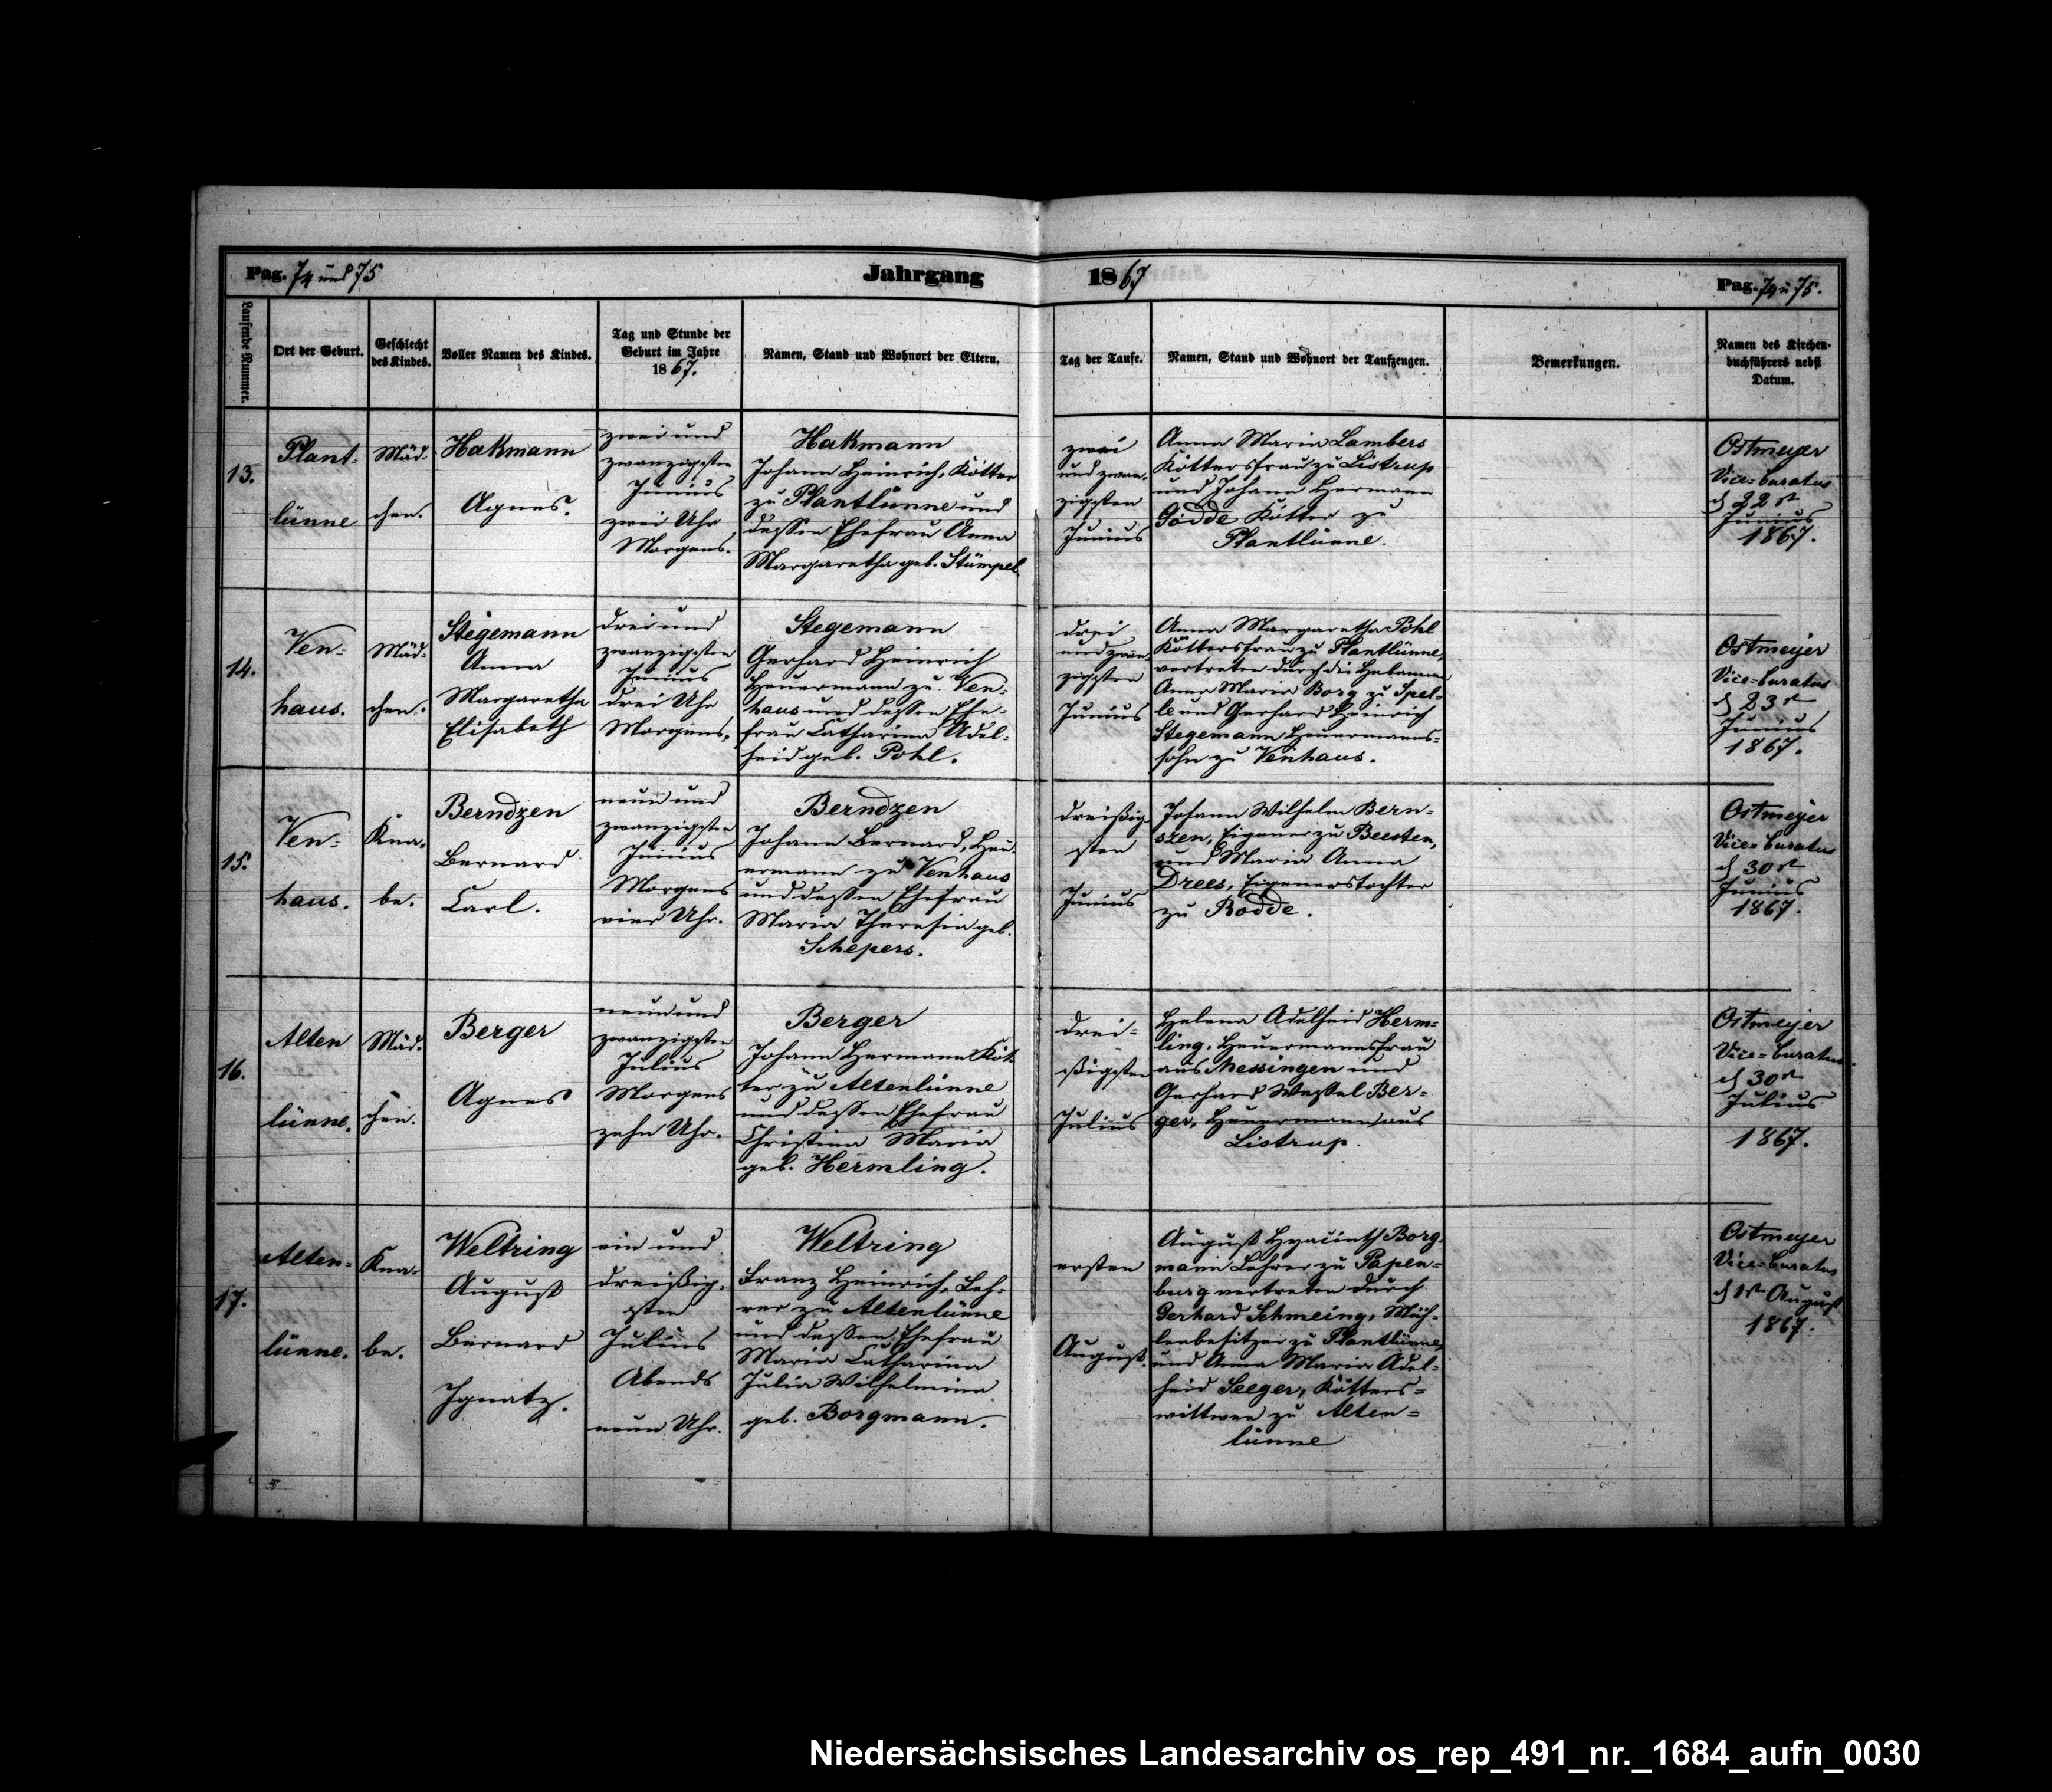 Pag. 74 und 75
Jahrgang 1867
Pag. 74 u 75.
Laufende Nummer.
Ort der Geburt.
Geschlecht
des Kindes.
Voller Namen des Kindes.
Tag und Stunde der
Geburt im Jahre
1867.
Namen, Stand und Wohnort der Eltern.
Tag der Taufe.
Namen, Stand und Wohnort der Taufzeugen.
Bemerkungen.
Namen des Kirchen-
buchführers nebst
Datum.
13.
Plant-
lünne
Mäd-
chen.
Hakmann
Agnes.
zwei und
zwanzigsten
Junius
zwei Uhr
Morgens.
Hakmann
Johann Heinrich, Kötter
zu Plantlünne und
dessen Ehefrau Anna
Margaretha geb. Stümpel.
zwei
und zwan-
zigsten
Junius
Anna Maria Lambers
Köttersfrau zu Listrup
und Johann Hermann
Gödde Kötter zu
Plantlünne.
Ostmeyer
Vice-Curatus
d 22st
Junius
1867.
14.
Ven-
haus.
Mäd-
chen.
Stegemann
Anna
Margaretha
Elisabeth
drei und
zwanzigsten
Junius
drei Uhr
Morgens.
Stegemann
Gerhard Heinrich
Heuermann zu Ven-
haus und dessen Ehe-
frau Catharina Adel-
heid geb. Pohl.
drei
und zwan-
zigsten
Junius
Anna Margaretha Pohl
Köttersfrau zu Plantlünne,
vertreten durch die Hebamme
Anna Maria Borg zu Spel-
le und Gerhard Heinrich
Stegemann Heuermanns-
sohn zu Venhaus.
Ostmeyer
Vice-Curatus
d 23st
Junius
1867.
15.
Ven-
haus.
Kna-
be.
Berndzen
Bernard
Carl.
neun und
zwanzigsten
Junius
Morgens
vier Uhr.
Berndzen
Johann Bernard, Heu-
ermann zu Venhaus
und dessen Ehefrau
Maria Theresia geb.
Schepers.
dreißig-
sten
Junius
Johann Wilhelm Bern-
szen, Eigener zu Beesten,
und Maria Anna
Drees, Eigenerstochter
zu Rodde.
Ostmeyer
Vice-Curatus
d 30st
Junius
1867.
16.
Alten
lünne.
Mäd-
chen.
Berger
Agnes
neun und
zwanzigsten
Julius
Morgens
zehn Uhr.
Berger
Johann Hermann Köt-
ter zu Altenlünne
und dessen Ehefrau
Christina Maria
geb. Hermling.
drei-
ßigsten
Julius
Helena Adelheid Herm-
ling, Heuermannsfrau
aus Messingen und
Gerhard Wessel Ber-
ger, Heuermann aus
Listrup.
Ostmeyer
Vice-Curatus
d 30st
Julius
1867.
17.
Alten-
lünne.
Kna-
be.
Weltring
August
Bernard
Ignatz.
ein und
dreißig-
sten
Julius
Abends
neun Uhr.
Weltring
Franz Heinrich, Leh-
rer zu Altenlünne
und dessen Ehefrau
Maria Catharina
Julia Wilhelmina
geb. Borgmann.
ersten
August.
August Hyacinth Borg-
mann Lehrer zu Papen-
burg vertreten durch
Gerhard Schmeing, Müh-
lenbesitzer zu Plantlünne,
und Anna Maria Adel-
heid Seeger, Kötters-
wittwe zu Alten-
lünne
Ostmeyer
Vice-Curatus
d 1st August
1867.
Niedersächsisches Landesarchiv os_rep_491_nr._1684_aufn_0030